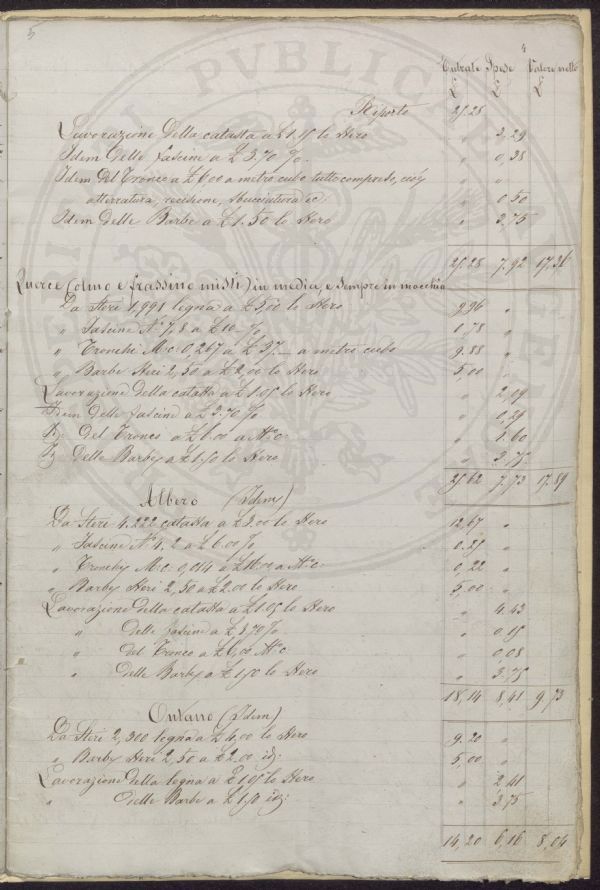 5
4
Entrate Spese Valore netto
£ £ £
Riporto 25.28
Lavorazione della catasta a £ 1.05 lo Stero " 3,29
Idem delle fascine a £ 3.70 %. " 0,38
Idem del Tronco a £ 6,00 a metro cubo tutto compreso, cioè " "
atterratura, recisione, sbucciatura ec: " 0,50
Idem delle Barbe a £ 1.50 lo Stero " 3,75
25.28 7,92 17,36
Querce (olmo e frassino misti) in media, e sempre in macchia
Da Steri 1,991 legna a £ 5,00 lo Stero 9,96 "
" Fascine N° 7,8 a £ 10 % 0,78 "
" Tronchi M: c: 0,267 a £ 37. — a metro cubo 9.88 "
" Barbe Steri 2,50 a £ 2,00 lo Stero 5,00 "
Lavorazione della catasta a £ 1.05 lo Stero " 2,09
Idem delle fascine a £ 3.70 % " 0,29
Id: del Tronco a £ 6.00 a M: c: " 1.60
Id: delle Barbe a £ 1.50 lo Stero " 3,75
25,62 7,73 17.89
Albero (Idem)
Da Steri 4.222 catasta a £ 3.00 lo Stero 12,67 "
" Fascine N° 4,2 a £ 6.00 % 0.25 "
" Tronchi M: c: 0,014 a £ 16.00 a M: c: 0,22 "
" Barbe Steri 2,50 a £ 2.00 lo Stero 5,00 "
Lavorazione della catasta a £ 1.05 lo Stero " 4.43
" delle fascine a £ 3,70 % " 0,15
" del Tronco a £ 6,00 M: c: " 0,08
" delle Barbe a £ 1,50 lo Stero " 3,75
18,14 8,41 9,73
Ontano (Idem)
Da Steri 2,300 legna a £ 4.00 lo Stero 9.20 "
" Barbe Steri 2,50 a £ 2.00 id: 5,00 "
Lavorazione della legna a £ 1.05 lo Stero " 2,41
" delle Barbe a £ 1,50 id: " 3,75
14,20 6,16 8,04